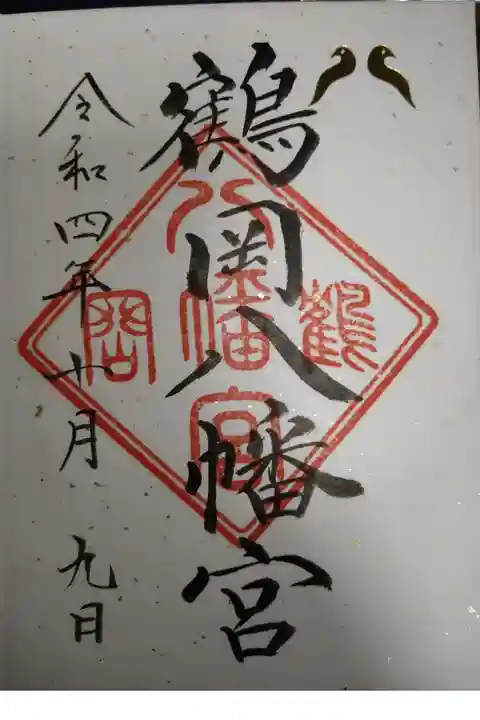 鶴岡八幡宮
令和四年十月九日
鶴
八幡宮
岡